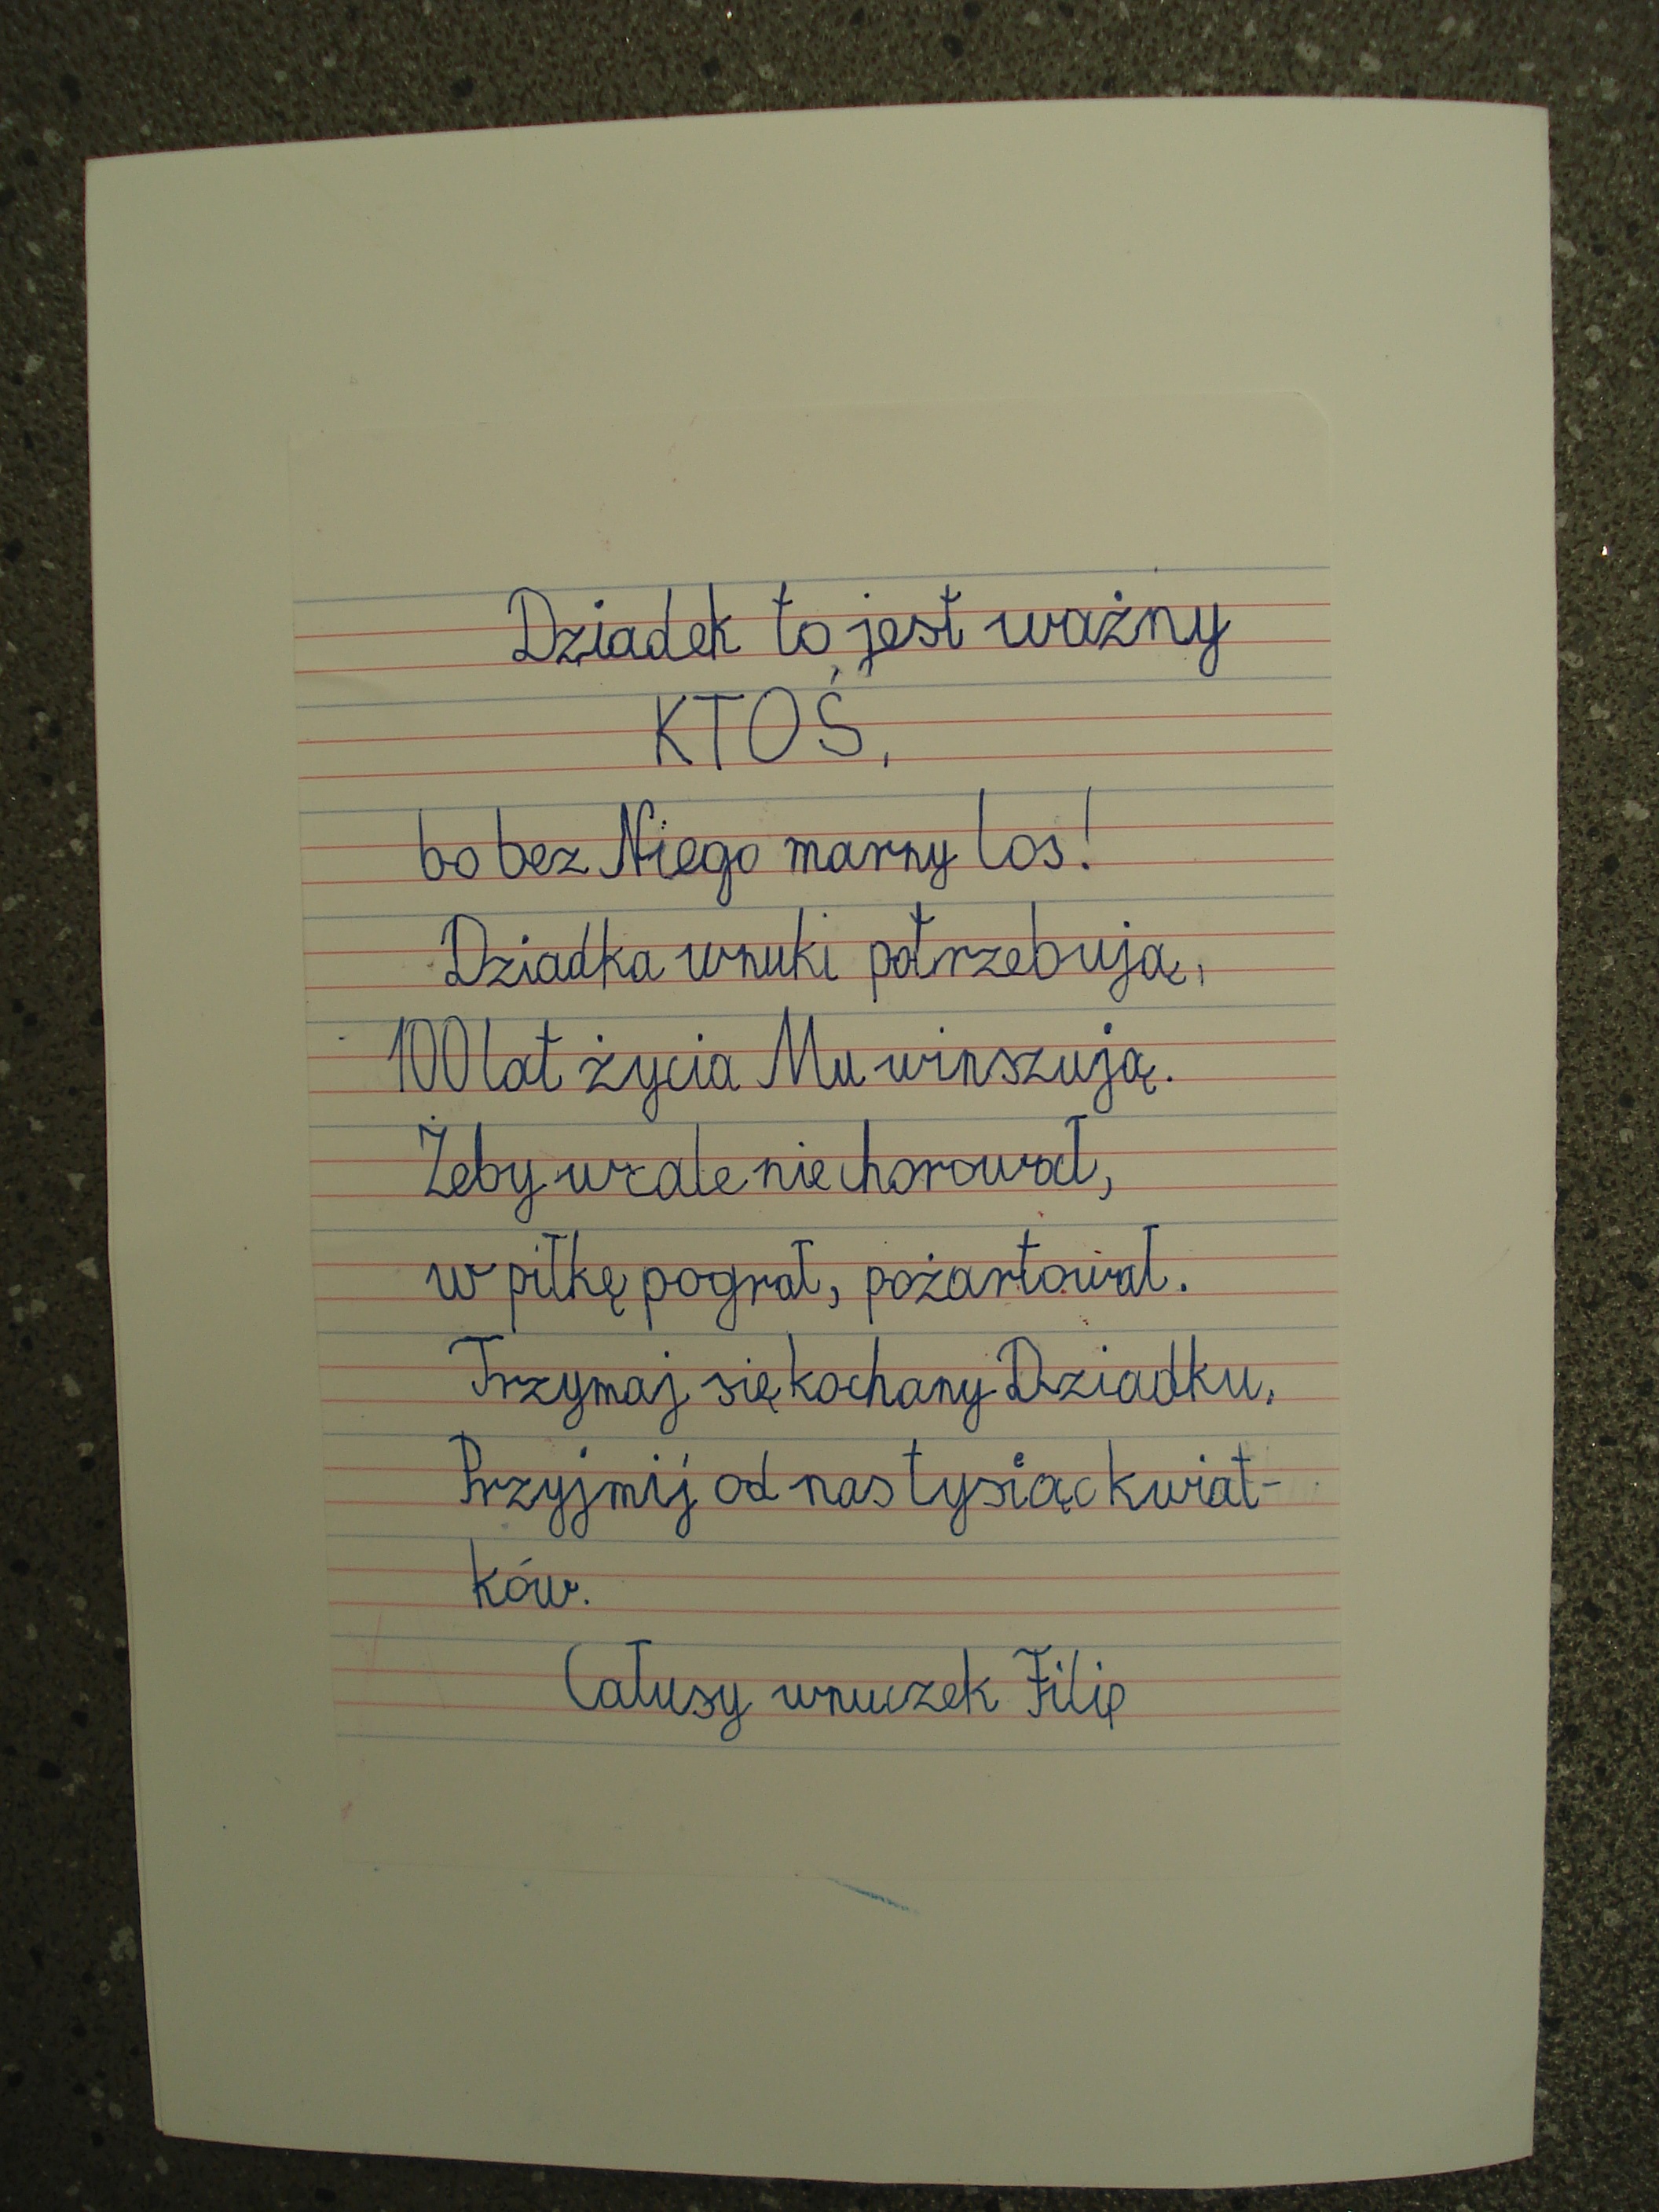 Dziadek to jest ważny
KTOŚ,
bo bez Niego marny los!
Dziadka wnuki potrzebują,
100 lat życia Mu winszują.
Żeby wcale nie chorował,
w piłkę pograł, pożartował.
Trzymaj się kochany Dziadku,
Przyjmij od nas tysiąc kwiat-
ków.
Całusy wnuczek Filip